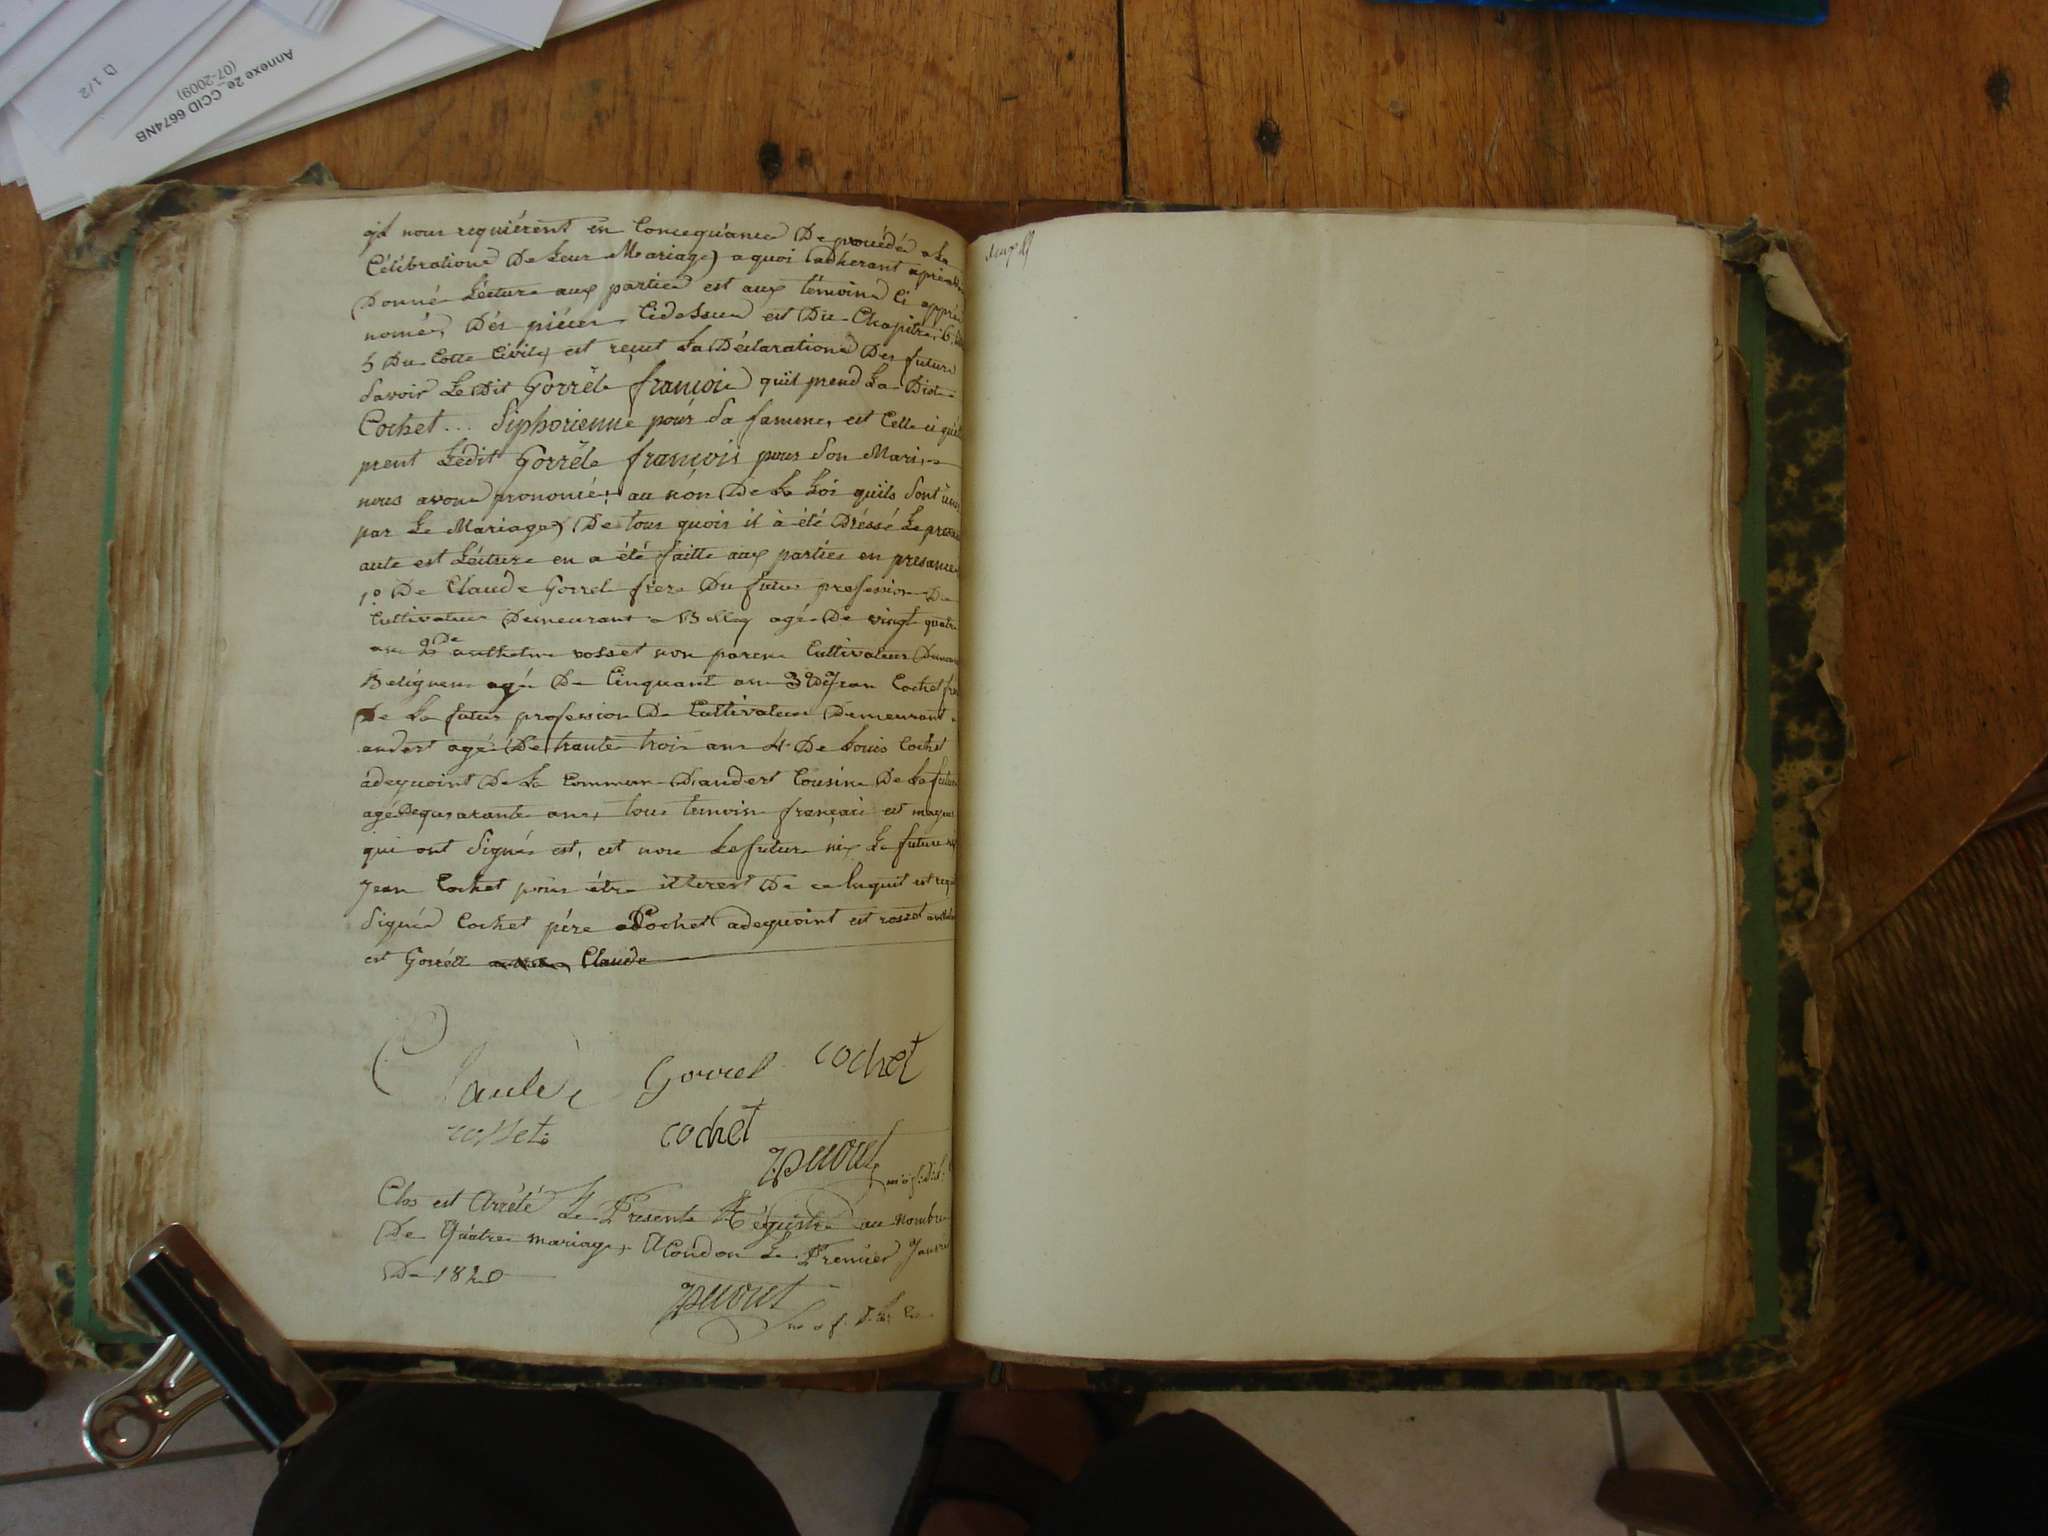 Annexe 2e_CCID 6674NB
(07-2009)
D 1/2
qd nous requiérent en Concequ'ance De procédé a La
Célébrations De Leur Mariage a quoi adherant après
Donné Lécture aux partie est aux témoins Ci appré
nomé, Dés piéces Cidessus est Du Chapitre 6
5 Du Code Civile, est reçut La Déclaration Des futurs
Savoir Le Dit Gorréle françois quit prend La Dist
Cochet ... Siphorienne pour Sa famme, est Celle ci
prent Lédit Gorréle françois pour Son Mari,
nous avons prononcié, au nón De La Loi quils Sont unis
par Le Mariage, De tous quois it à été Dréssé Le
acte est Lécture en a été faitte aux parties en presance
1º De Claude Gorrel frere Du futur profession De
Cultivateur Demeurant a Belley agé De vingt quatre
ans 2º De anthelme rosset non parens Cultivateur
Belignieu agé De Cinquant ans 3º De Jean Cochet
De La futur profession De Cultivateur Demeurant a
andert agé De trante trois ans 4º De Louis Cochet
adequoint De La Commun D'andert Cousin De La future
agé De quarante ans, tous temoins français est
qui ont Signés est, et non Le future nix La future
Jean Cochet pour être itterest De ce
Signé Cochet pére Cochet adequoint est rosset
est Gorréll Claude
Claude Gorrel cochet
rosset cochet
Clos est Arrété Le Present Régistre au nombre
De Quatre mariage, A Condon Le Premier
De 1820